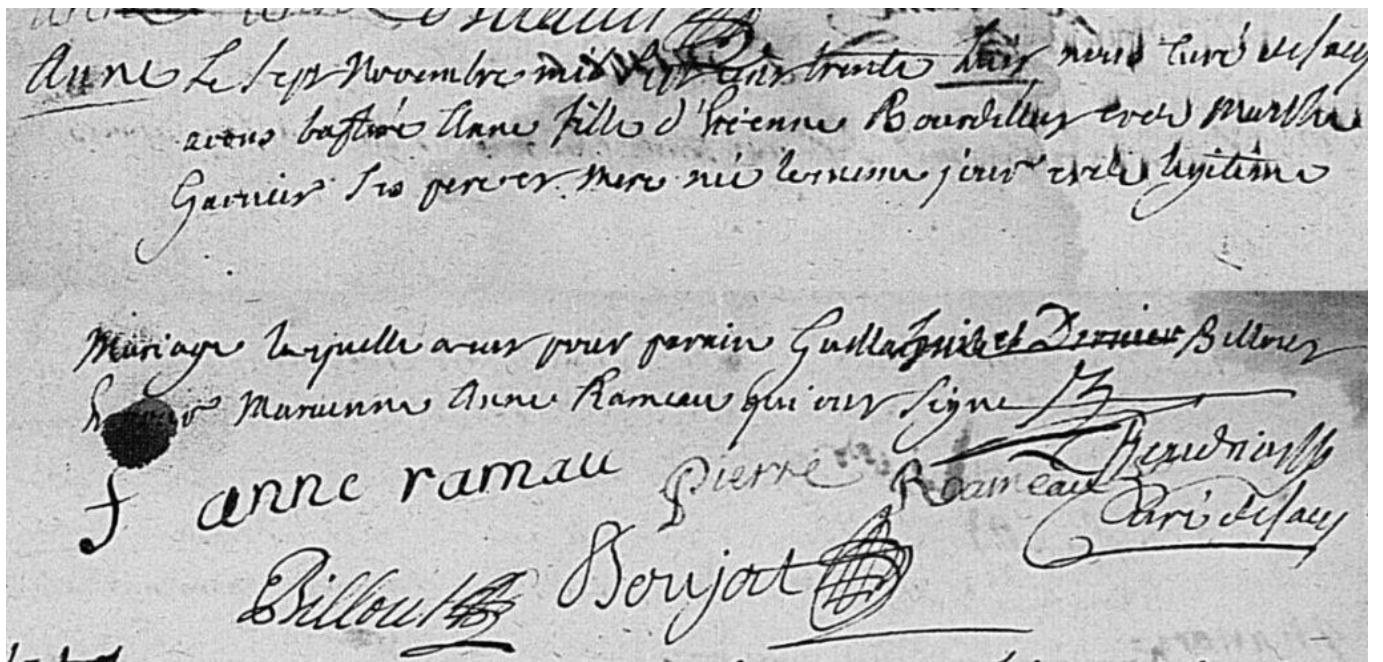 Anne Le sept Novembre mil sept cens trente huit nous curé de sacy
avons baptisé Anne fille d'Etienne Bourdillat et de Marthe
Garnier ses pere et mere née le meme jour et de legitime
Mariage laquelle a eut pour parain Billout
Marianne Anne Rameau qui ont signe
anne ramau Pierre Rameau
Curé de sacy
Billout Boujat